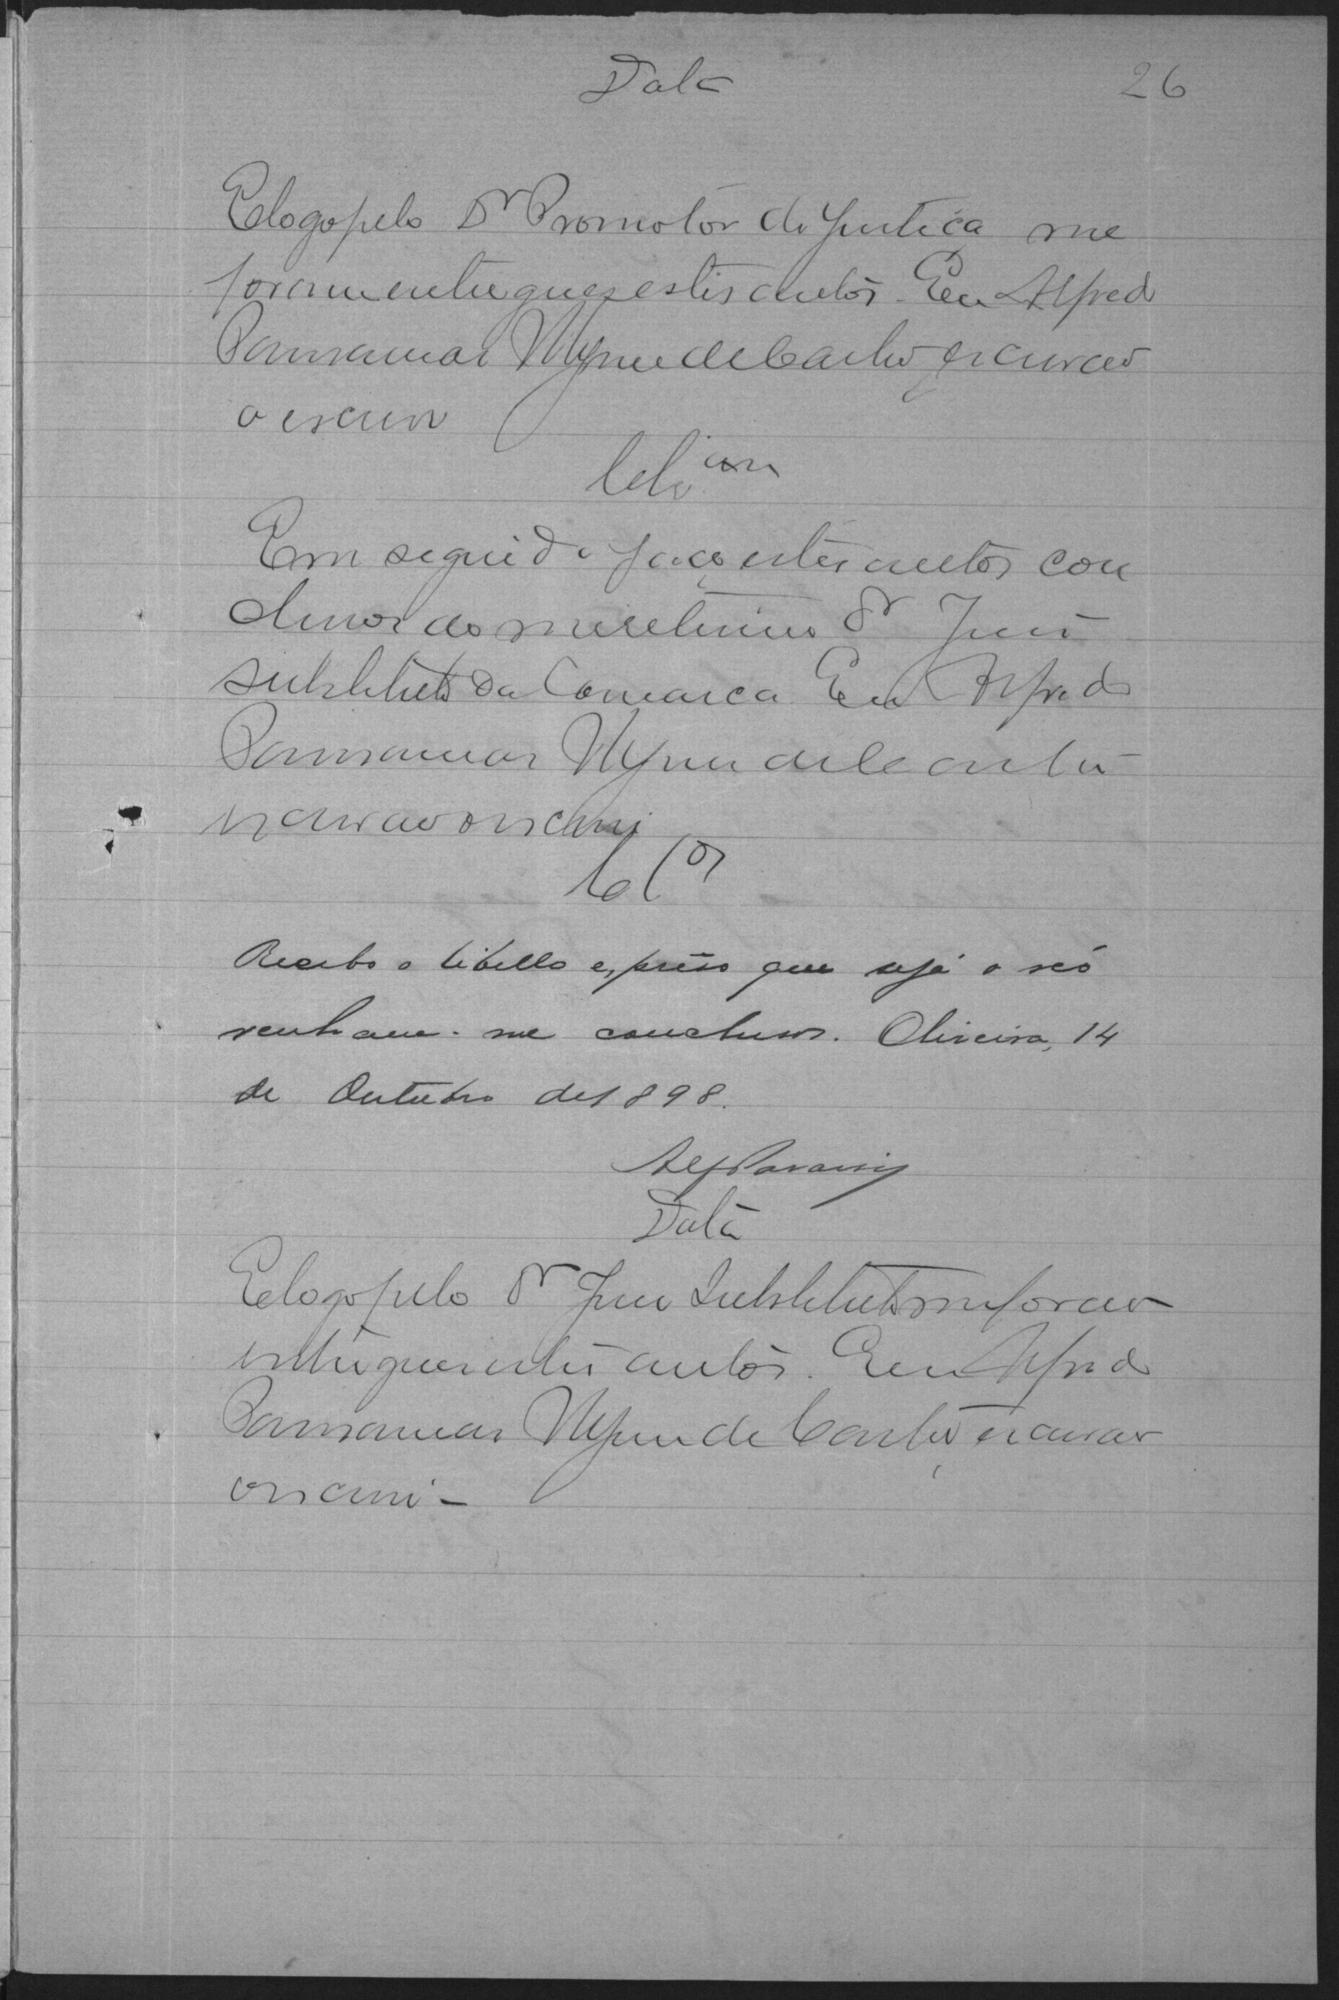 Data
26
E logo pelo Dr Promotor de Justiça me
foram entregues estes autos. Eu Alfredo
de Castro, escrivão
o escrevi
Clsam
Em seguida faço estes autos con
clusos ao meretissimo Dr Juiz
substituto da Comarca. Eu Alfredo
de Castro
escrivão o escrevi
Clos
Recebo o libello e, preso que seja o réo
venham-me conclusos. Oliveira, 14
de Outubro de 1898.
Data
E logo pelo Dr Juiz Substituto me forão
entregues estes autos. Eu Alfredo
de Castro escrivão
o escrevi -